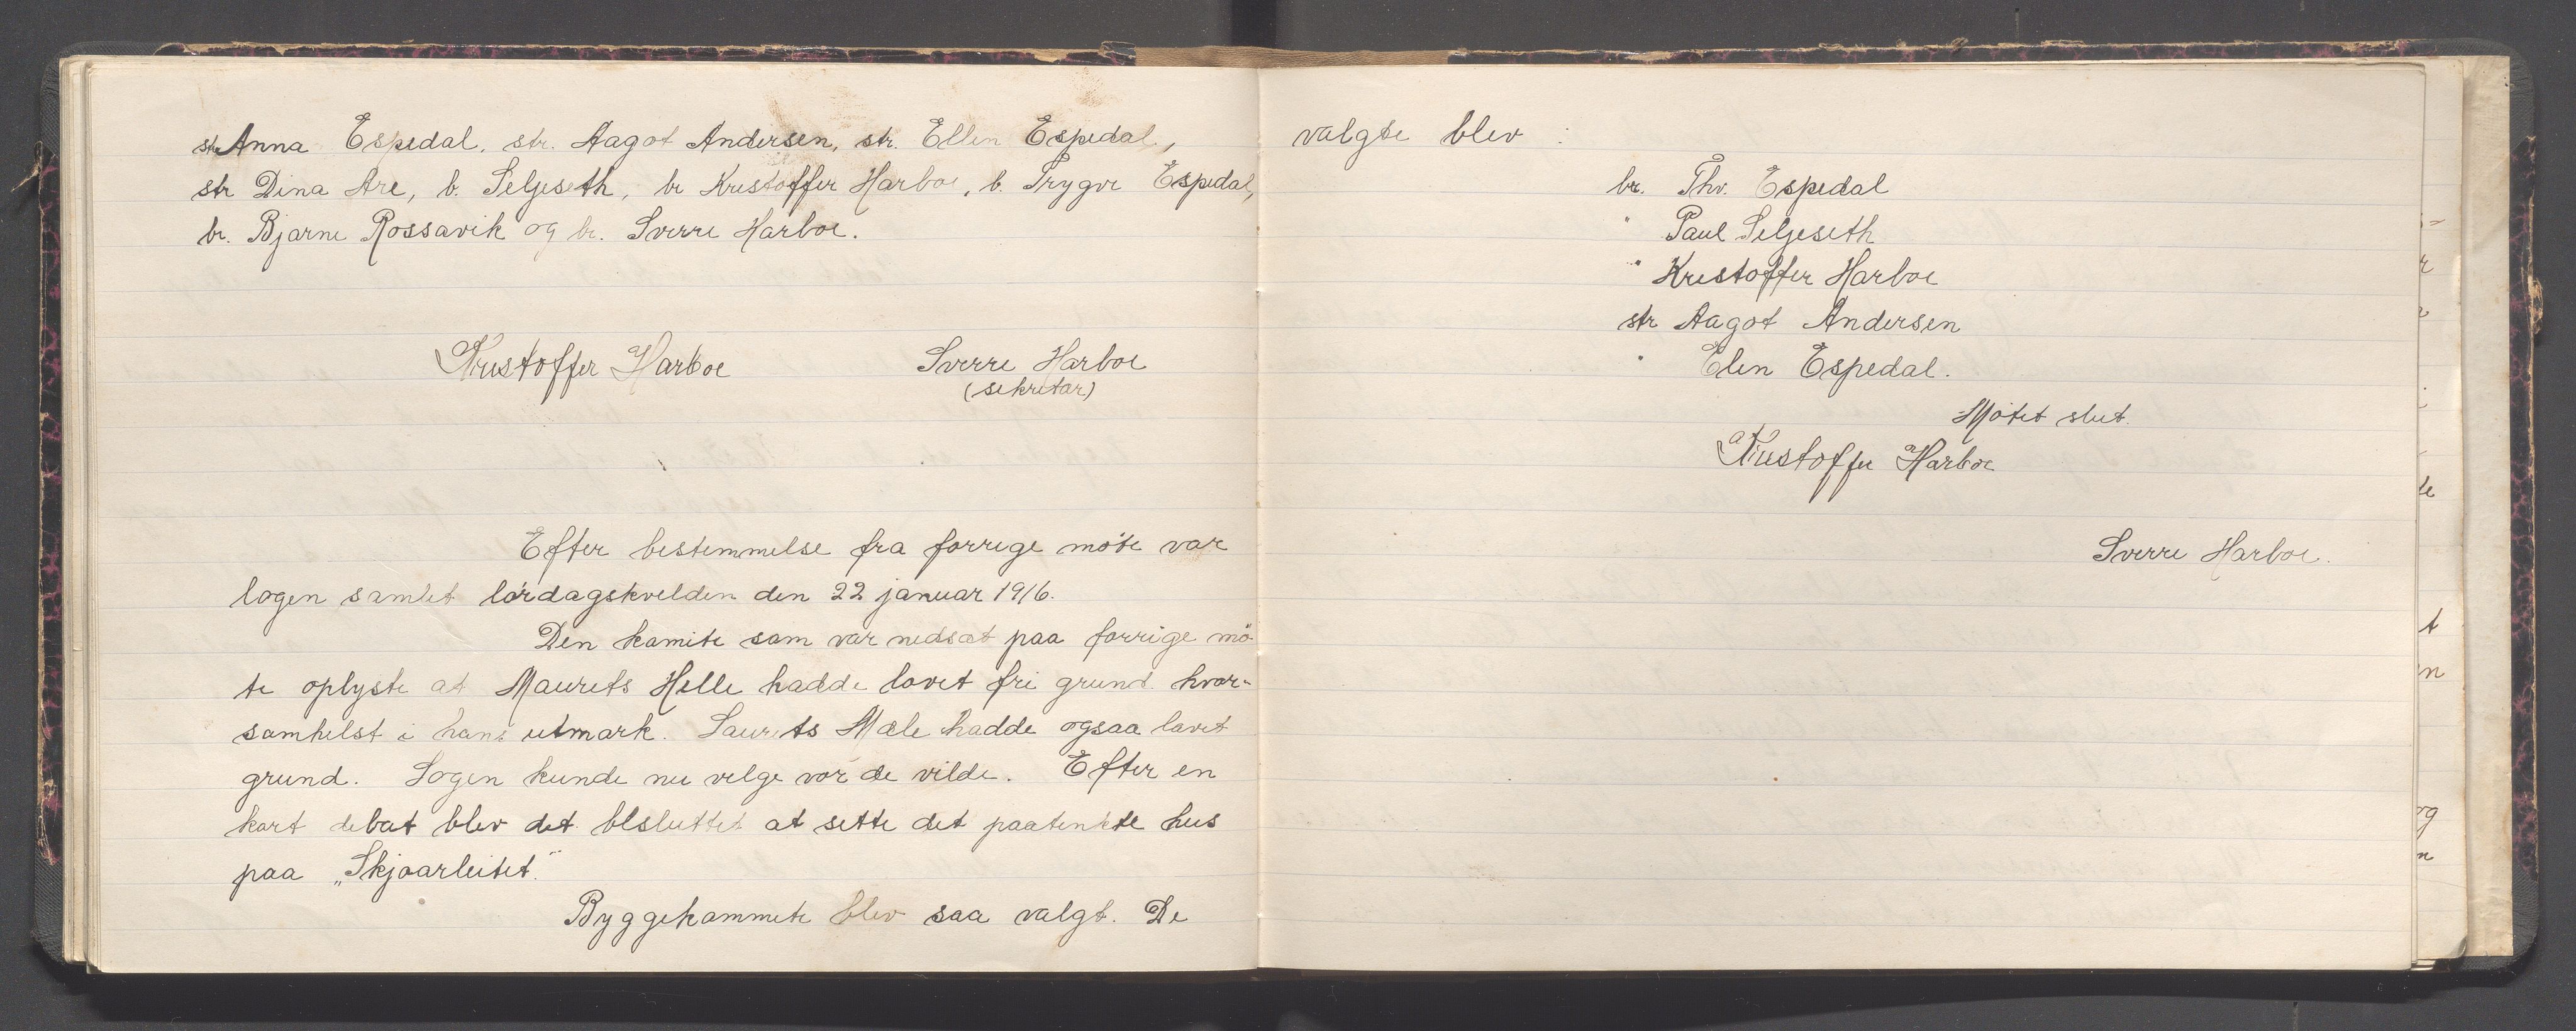 str Anna Espedal, str. Aagot Andersen, str. Ellen Espedal,
str Dina Are, b. Seljeseth, br Kristoffer Harboe, b. Trygve Espedal,
br. Bjarne Rossavik og br. Sverre Harboe.
Kristoffer Harboe Sverre Harboe
(sekretær)
Efter bestemmelse fra forrige møte var
logen samlet lørdagskvelden den 22 januar 1916.
Den komite som var nedsat paa forrige mø-
te oplyste at Maurits Helle hadde lovet fri grund hvor-
somhelst i hans utmark. Laurits Mæle hadde ogsaa lovet
grund. Logen kunde nu velge vor de vilde. Efter en
kort debat blev det besluttet at sette det paatenkte hus
paa „Skjoarleitet."
Byggekommite blev saa valgt. De
valgte blev :
br. Thv. Espedal
" Paul Seljeseth
" Kristoffer Harboe
str Aagot Andersen
" Elen Espedal.
Møtet slut.
Kristoffer Harboe
Sverre Harboe.